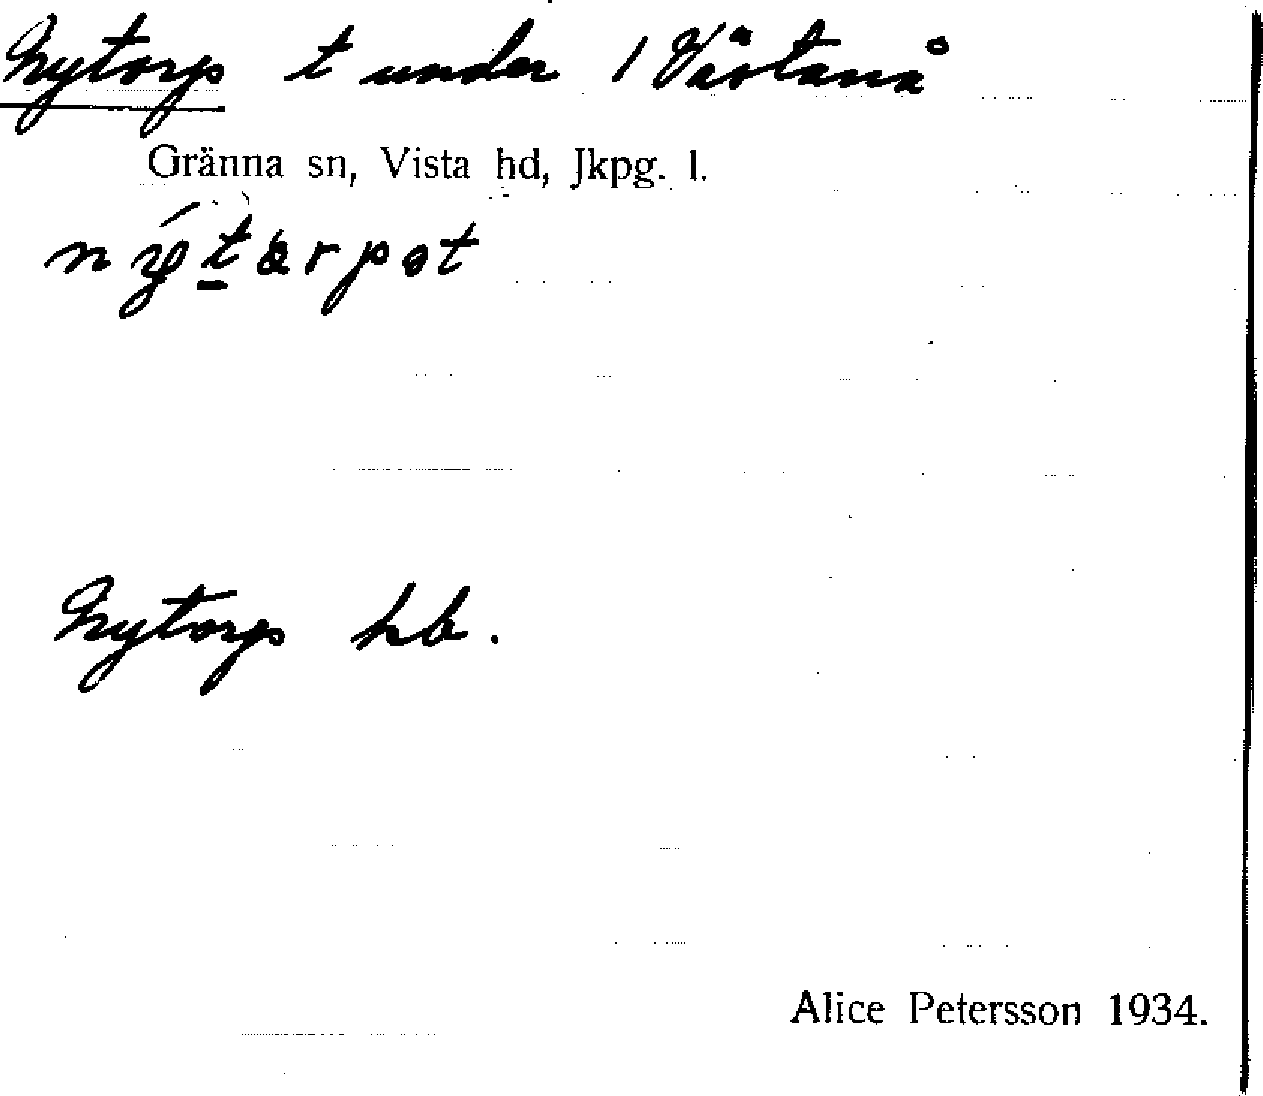 Nytorp t under 1 Västanå
Gränna sn, Vista hd, Jkpg. l.
nýtàrpət
Nytorp hb.
Alice Petersson 1934.